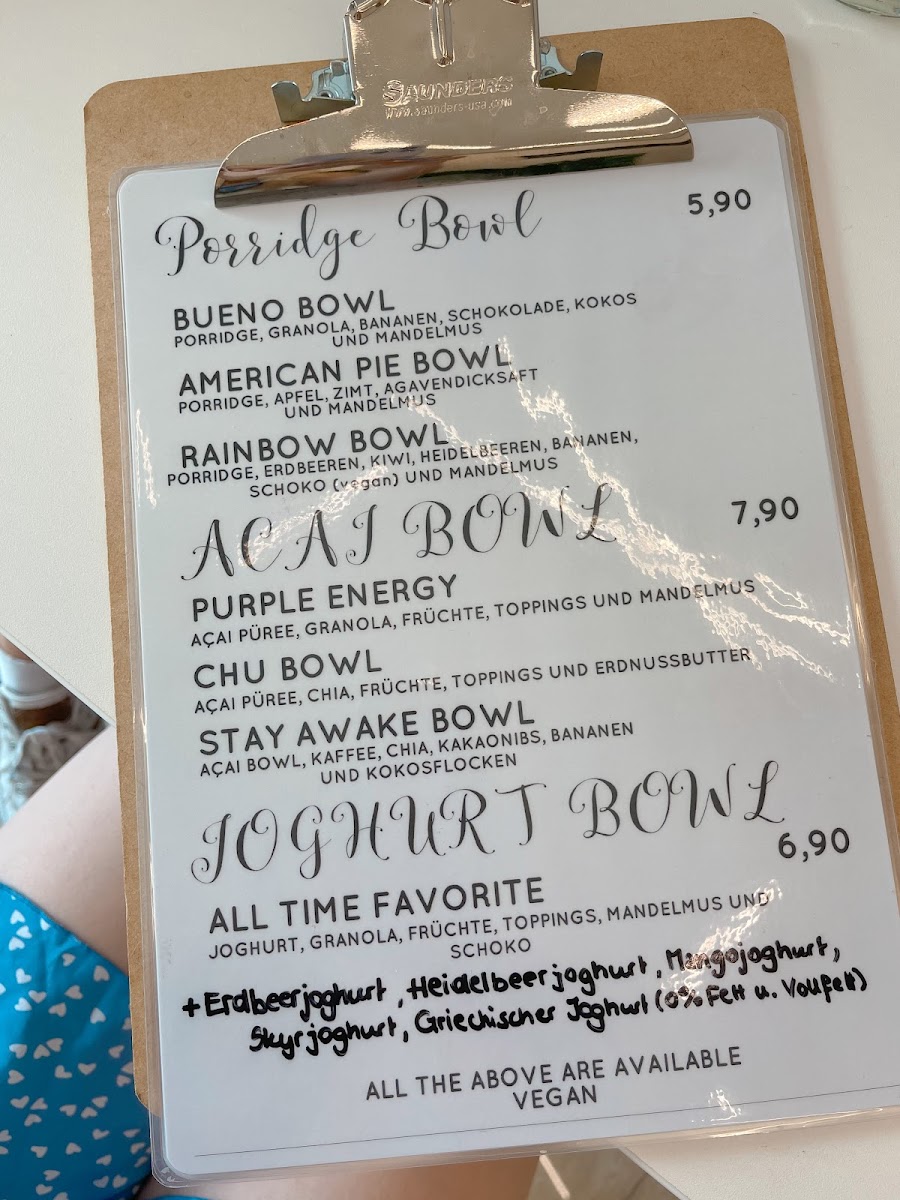 SAUNDERS
www.saunders-usa.com
Porridge Bowl 5,90
BUENO BOWL
PORRIDGE, GRANOLA, BANANEN, SCHOKOLADE, KOKOS
UND MANDELMUS
AMERICAN PIE BOWL
PORRIDGE, APFEL, ZIMT, AGAVENDICKSAFT
UND MANDELMUS
RAINBOW BOWL
PORRIDGE, ERDBEEREN, KIWI, HEIDELBEEREN, BANANEN,
SCHOKO (vegan) UND MANDELMUS
ACAI BOWL 7,90
PURPLE ENERGY
AÇAI PÜREE, GRANOLA, FRÜCHTE, TOPPINGS UND MANDELMUS
CHU BOWL
AÇAI PÜREE, CHIA, FRÜCHTE, TOPPINGS UND ERDNUSSBUTTER
STAY AWAKE BOWL
AÇAI BOWL, KAFFEE, CHIA, KAKAONIBS, BANANEN
UND KOKOSFLOCKEN
JOGHURT BOWL
6,90
ALL TIME FAVORITE
JOGHURT, GRANOLA, FRÜCHTE, TOPPINGS, MANDELMUS UND
SCHOKO
+ Erdbeerjoghurt, Heidelbeerjoghurt, Mangojoghurt,
Skyrjoghurt, Griechischer Joghurt (0% Fett u. Vollfett)
ALL THE ABOVE ARE AVAILABLE
VEGAN